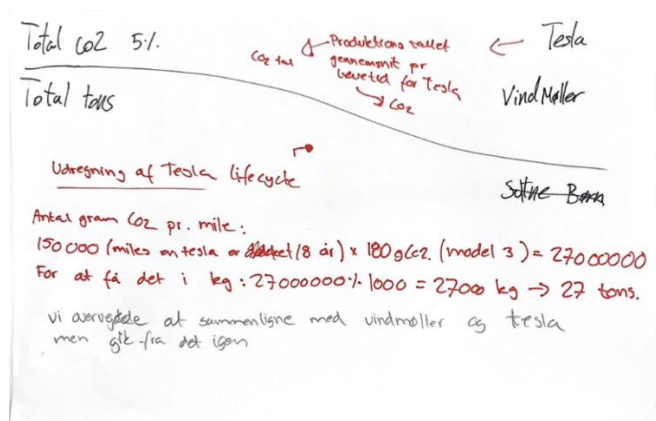 Total co2 5%
Total tons
CO2 tal
Produktions tallet
gennemsnit pr
levetid for Tesla
→ CO2
← Tesla
Vind Møller
Udregning af Tesla lifecycle
Antal gram CO2 pr. mile:
150 000 (miles en tesla er (8 år) x 180 g CO2. (model 3) = 27000000
For at få det i kg: 27000000 % 1000 = 27000 kg → 27 tons.
vi overvejede at sammenligne med vindmøller og tesla
men gik fra det igen